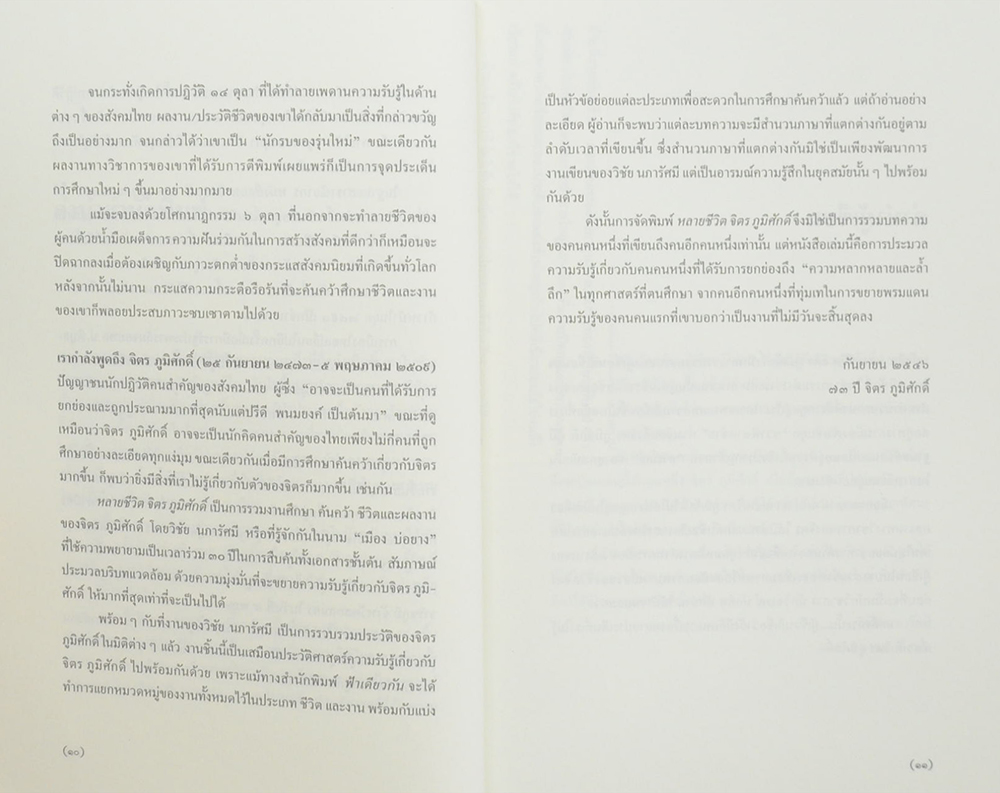 จนกระทั่งเกิดการปฏิวัติ ๑๔ ตุลา ที่ได้ทำลายเพดานความรับรู้ในด้าน
ต่าง ๆ ของสังคมไทย ผลงาน/ประวัติชีวิตของเขาได้กลับมาเป็นสิ่งที่กล่าวขวัญ
ถึงเป็นอย่างมาก จนกล่าวได้ว่าเขาเป็น “นักรบของรุ่นใหม่” ขณะเดียวกัน
ผลงานทางวิชาการของเขาที่ได้รับการตีพิมพ์เผยแพร่ก็เป็นการจุดประเด็น
การศึกษาใหม่ ๆ ขึ้นมาอย่างมากมาย
แม้จะจบลงด้วยโศกนาฏกรรม ๖ ตุลา ที่นอกจากจะทำลายชีวิตของ
ผู้คนด้วยน้ำมือเผด็จการ ความฝันร่วมกันในการสร้างสังคมที่ดีกว่าก็เหมือนจะ
ปิดฉากลงเมื่อต้องเผชิญกับภาวะตกต่ำของกระแสสังคมนิยมที่เกิดขึ้นทั่วโลก
หลังจากนั้นไม่นาน กระแสความกระตือรือร้นที่จะค้นคว้าศึกษาชีวิตและงาน
ของเขาก็พลอยประสบภาวะซบเซาตามไปด้วย
เรากำลังพูดถึง จิตร ภูมิศักดิ์ (๒๕ กันยายน ๒๔๗๓–๕ พฤษภาคม ๒๕๐๙)
ปัญญาชนนักปฏิวัติคนสำคัญของสังคมไทย ผู้ซึ่ง “อาจจะเป็นคนที่ได้รับการ
ยกย่องและถูกประณามมากที่สุดนับแต่ปรีดี พนมยงค์ เป็นต้นมา” ขณะที่ดู
เหมือนว่าจิตร ภูมิศักดิ์ อาจจะเป็นนักคิดคนสำคัญของไทยเพียงไม่กี่คนที่ถูก
ศึกษาอย่างละเอียดทุกแง่มุม ขณะเดียวกันเมื่อมีการศึกษาค้นคว้าเกี่ยวกับจิตร
มากขึ้น ก็พบว่ายิ่งมีสิ่งที่เราไม่รู้เกี่ยวกับตัวของจิตรก็มากขึ้น เช่นกัน
หลายชีวิต จิตร ภูมิศักดิ์ เป็นการรวมงานศึกษา ค้นคว้า ชีวิตและผลงาน
ของจิตร ภูมิศักดิ์ โดยวิชัย นภารัศมี หรือที่รู้จักกันในนาม “เมือง บ่อยาง”
ที่ใช้ความพยายามเป็นเวลาร่วม ๓๐ ปีในการสืบค้นทั้งเอกสารชั้นต้น สัมภาษณ์
ประมวลบริบทแวดล้อม ด้วยความมุ่งมั่นที่จะขยายความรับรู้เกี่ยวกับจิตร ภูมิ-
ศักดิ์ ให้มากที่สุดเท่าที่จะเป็นไปได้
พร้อม ๆ กับที่งานของวิชัย นภารัศมี เป็นการรวบรวมประวัติของจิตร
ภูมิศักดิ์ในมิติต่าง ๆ แล้ว งานชิ้นนี้เป็นเสมือนประวัติศาสตร์ความรับรู้เกี่ยวกับ
จิตร ภูมิศักดิ์ ไปพร้อมกันด้วย เพราะแม้ทางสำนักพิมพ์ ฟ้าเดียวกัน จะได้
ทำการแยกหมวดหมู่ของงานทั้งหมดไว้ในประเภท ชีวิต และงาน พร้อมกับแบ่ง
(๑๐)
เป็นหัวข้อย่อยแต่ละประเภทเพื่อสะดวกในการศึกษาค้นคว้าแล้ว แต่ถ้าอ่านอย่าง
ละเอียด ผู้อ่านก็จะพบว่าแต่ละบทความจะมีสำนวนภาษาที่แตกต่างกันอยู่ตาม
ลำดับเวลาที่เขียนขึ้น ซึ่งสำนวนภาษาที่แตกต่างกันมิใช่เป็นเพียงพัฒนาการ
งานเขียนของวิชัย นภารัศมี แต่เป็นอารมณ์ความรู้สึกในยุคสมัยนั้น ๆ ไปพร้อม
กันด้วย
ดังนั้นการจัดพิมพ์ หลายชีวิต จิตร ภูมิศักดิ์ จึงมิใช่เป็นการรวมบทความ
ของคนคนหนึ่งที่เขียนถึงคนอีกคนหนึ่งเท่านั้น แต่หนังสือเล่มนี้คือการประมวล
ความรับรู้เกี่ยวกับคนคนหนึ่งที่ได้รับการยกย่องถึง “ความหลากหลายและล้ำ
ลึก” ในทุกศาสตร์ที่ตนศึกษา จากคนอีกคนหนึ่งที่ทุ่มเทในการขยายพรมแดน
ความรับรู้ของคนคนแรกที่เขาบอกว่าเป็นงานที่ไม่มีวันจะสิ้นสุดลง
กันยายน ๒๕๔๖
๗๓ ปี จิตร ภูมิศักดิ์
(๑๑)